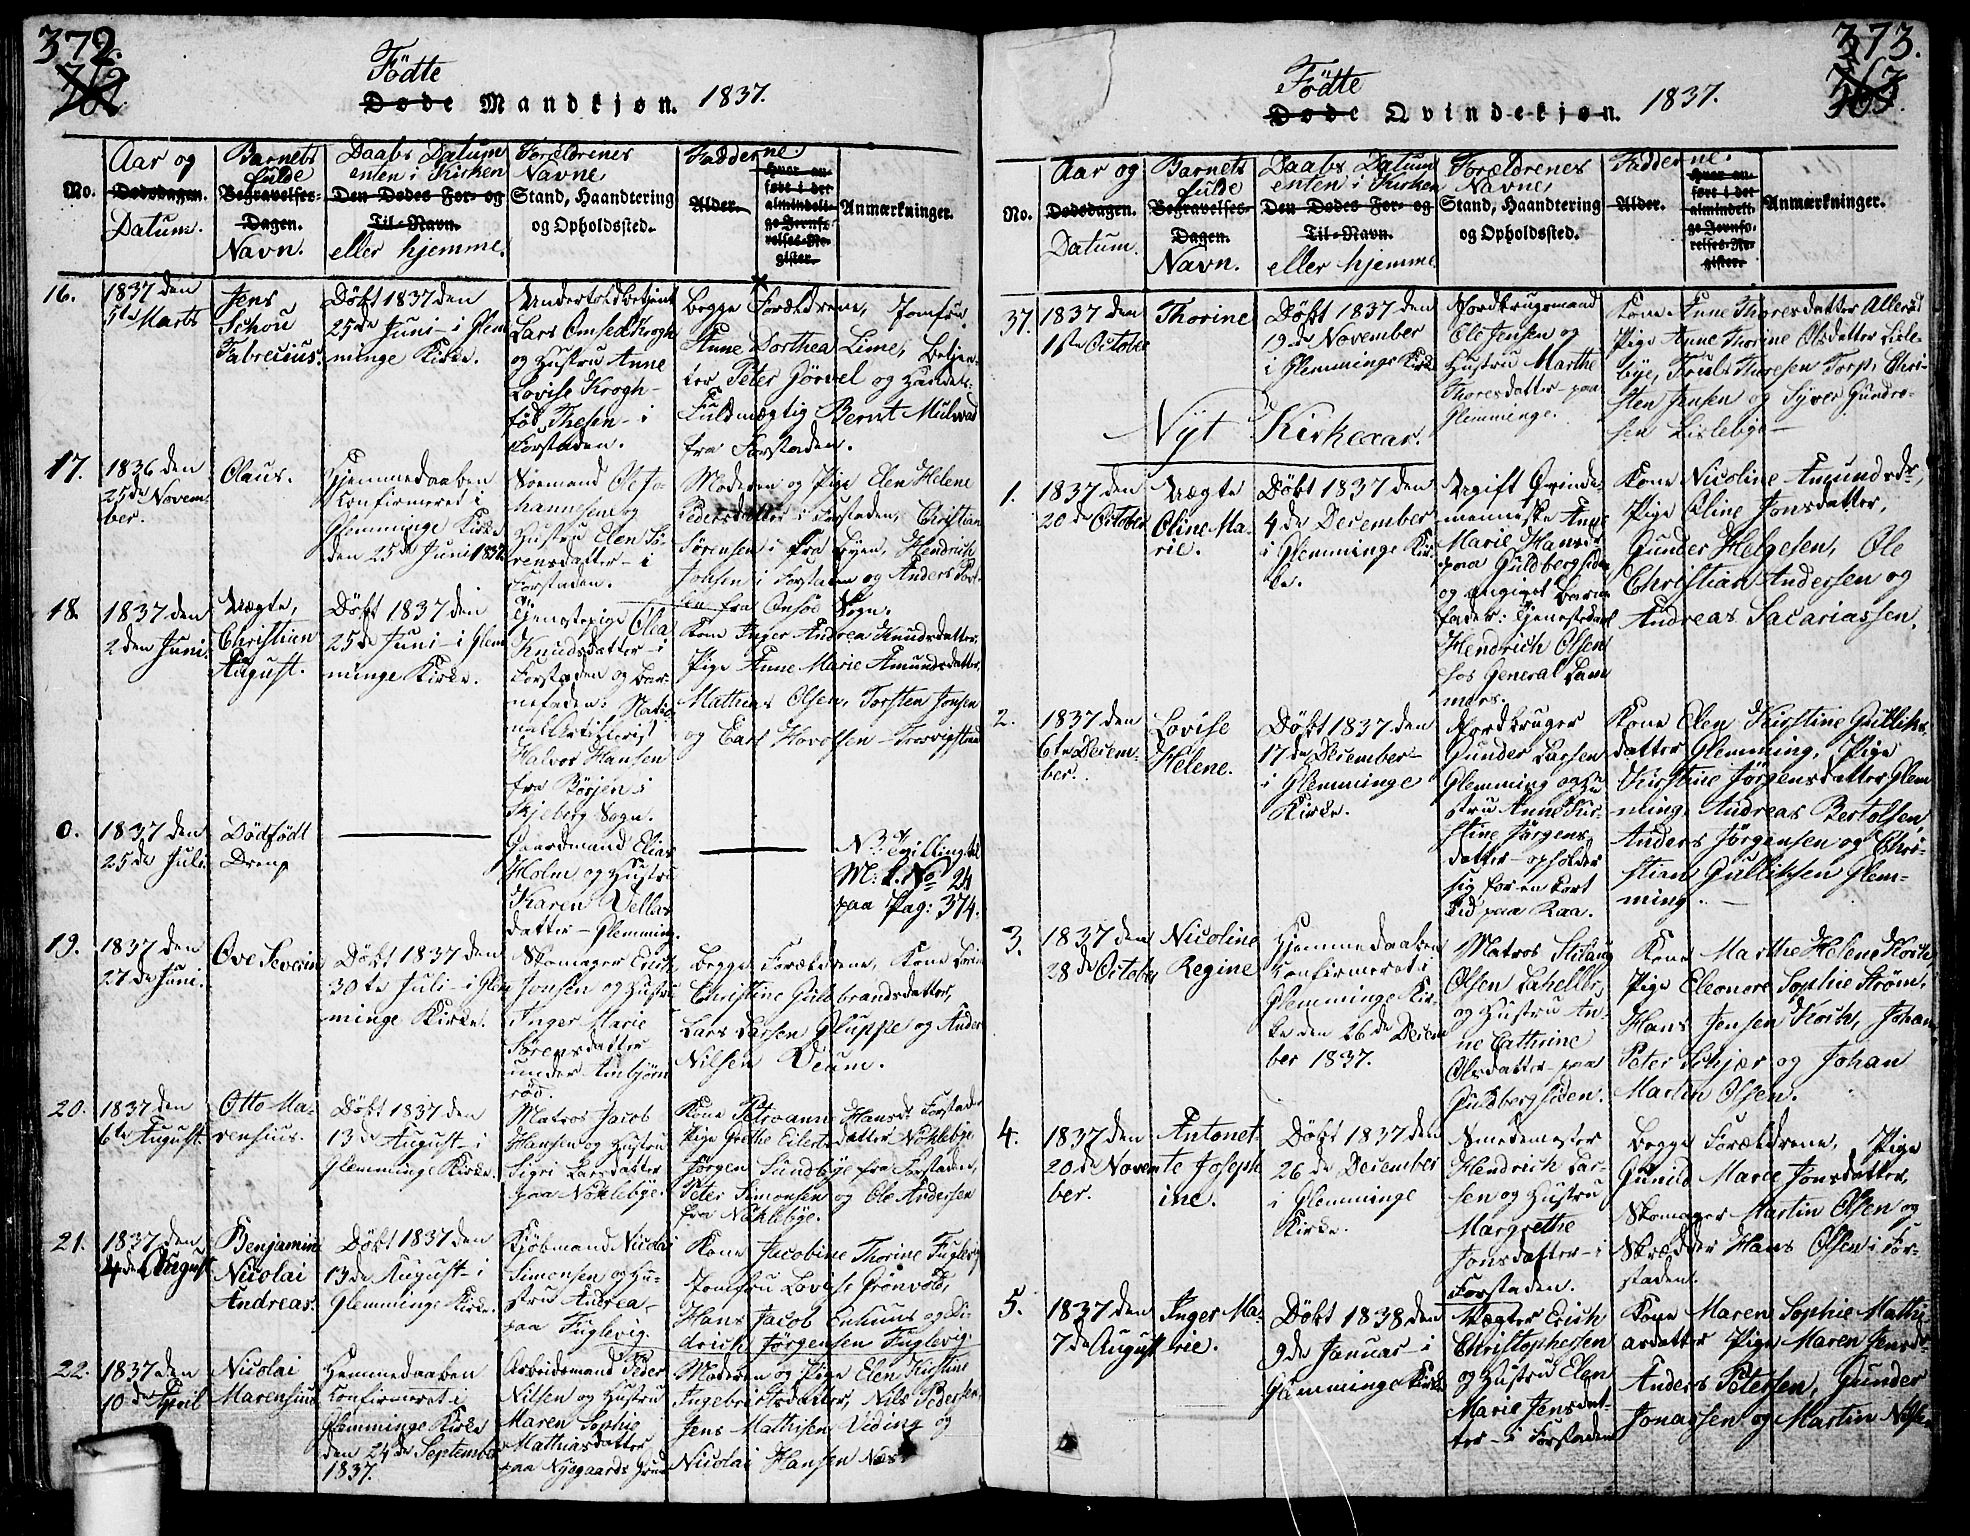 372.
Födte
Døde Mandkjøn. 1837.
No.
Aar og
Dødsdagen.
Datum.
Barnets
fulde
Begravelses-
Dagen.
Navn.
Daabs Datum
enten i Kirken
Den Dødes For- og
Til-Navn.
eller hjemme.
Forældrenes
Navne,
Stand, Haandtering
og Opholdssted.
Fadderne.
Alder.
Hvor an-
ført i det
almindeli-
ge Jevnfø-
relses-Re-
gister.
Anmærkninger.
16.
1837 den
5te Marts
Jens
Schou
Fabrecius.
Døbt 1837 den
25de Juni - i Glem
minge Kirke.
Undertoldbetjent
Lars Omsed Krogh
og Hustru Anne
Lovise Krogh
fød Thesen - i
Forstaden.
Begge Forældrene, Jomfru
Anne Dorthea Lime, Betjen-
ter Peter Jörvel og Handels-
Fuldmægtig Bernt Mulvad
fra Forstaden.
17.
1836 den
25de Novem-
ber.
Olaus.
Hjemmedaaben
Confirmeret i
Glemminge Kirke
den 25de Juni 1837.
Soemand Ole Jo-
hannsen og
Hustru Elen Sö-
rensdatter - i
Forstaden.
Moderen og Pige Elen Helene
Pedersdatter i Forstaden, Christian
Sörensen i fra Byen, Hendrich
Johsen i Forstaden og Anders
fra Onsöe Sogn.
18.
1837 den
2den Juni.
Uægte,
Christian
August.
Døbt 1837 den
25de Juni - i Glem
minge Kirke.
Tjenestepige Olea
Knudsdatter - i
Forstaden og Bar-
nefader: Natio-
nal Artillerist
Halvor Hansen
fra Börjen i
Skjeberg Sogn.
Kone Inger Andrea Knudsdatter,
Pige Anne Marie Amundsdatter,
Mathias Olsen, Torsten Jonsen
og Carl Hovolsen - Trosvigstrand
0.
1837 den
25de Juli
Dödfödt
Dreng
Gaardmand Elias
Holm og Hustru
Karen Vellas
datter - Glemming.
NB: Tvilling til
M: k. No 24
paa Pag: 374.
19.
1837 den
27de Juni.
Ove Severin
Døbt 1837 den
30te Juli - i Glem
minge Kirke.
Skomager Erich
Jonsen og Hustru
Inger Marie
Sörensdatter
under Anbjörn
röd.
Begge Forældrene, Kone
Christine Guldbrandsdatter,
Lars Larsen Gluppe og Anders
Nilsen Veum.
20.
1837 den
6te August.
Otto Ma-
rensius.
Døbt 1837 den
13de August - i
Glemminge Kirke.
Matros Jacob
Hansen og Hustru
Sigri Larsdatter
paa Nöklebye.
Kone Petroanna Hansdr Forstaden
Pige Grethe Eilertsdatter Nöklebye
Jörgen Sundbye fra Forstaden,
Peter Simonsen og Ole Andersen
fra Nöklebye.
21.
1837 den
4de August
Benjamin
Nicolai
Andreas.
Døbt 1837 den
13de August - i
Glemminge Kirke.
Kjöbmand Nicolai
Simonsen og Hu-
stru Andrea
paa Fuglevig.
Kone Jacobine Thorine Fuglevig
Jomfru Lovise Grönvold,
Hans Jacob Enhuus og Di-
drich Jörgensen Fuglevig.
22.
1837 den
10de April
Nicolai
Marensius
Hemmedaaben
Confirmeret i
Glemminge Kirke
den 24de September
1837.
Arbeidsmand Peder
Nilsen og Hustru
Maren Sophie
Mathiasdatter
paa Nygaards Grund
Moderen og Pige Elen Kistine
Ingebrigtsdatter, Nils Pedersen,
Jens Mathisen Veding og
Nicolai Hansen Næs.
373.
Födte
Døde Qvindekjøn. 1837.
No.
Aar og
Dødsdagen.
Datum.
Barnets
fulde
Begravelses-
Dagen.
Navn.
Daabs Datum
enten i Kirken
Den Dødes For- og
Til-Navn.
eller hjemme
Forældrenes
Navne,
Stand, Haandtering
og Opholdssted.
Fadderne.
Alder.
Hvor an-
ført i det
almindeli-
ge Jevnfø-
relses-Re-
gister.
Anmærkninger.
37.
1837 den
11te October
Thorine
Døbt 1837 den
19de November
i Glemminge Kirke
Jordbrugsmand
Ole Jensen og
Hustru Marthe
Thoresdatter paa
Glemminge.
Kone Anne Thoresdatter Alleröd
Pige Anne Thorine Olsdatter Lisle-
bye, Truls Thoresen Torp, Chri-
sten Jensen og Syver Gunder-
sen Lislebye
Nyt Kirkeaar.
1.
1837 den
20de October
Uægte
Oline Ma-
rie.
Døbt 1837 den
4de December
i Glemminge Kir-
ke.
Ugift Qvinde-
menniske Anne
Marie Hansdr
paa Guldbergsiden
og angivet Barne
fader: Tjenestekarl
Hendrich Olsen
hos General Lam
mers.
Kone Nicoline Amundsdr,
Pige Oline Jonsdatter,
Gunder Helgesen, Ole
Christian Andersen og
Andreas Sacariassen.
2.
1837 den
6te Decem-
ber.
Lovise
Helene.
Døbt 1837 den
17de December
i Glemminge
Kirke.
Jordbruger
Gunder Larsen
Glemming og Hu
stru Anne Kir-
stine Jörgens
datter - opholder
sig for en kort
Tid paa Raa.
Kone Elen Kirstine Gulliks-
datter Glemming, Pige
Kirstine Jörgensdatter Glem
ming, Andreas Bertolsen,
Anders Jörgensen og Chri-
stian Gulliksen Glem-
ming.
3.
1837 den
28de October
Nicoline
Regine
Hjemmedaaben
Confirmeret i
Glemminge Kir-
ke den 26de Decem
ber 1837.
Matros
Olsen Lahelle,
og Hustru An-
ne Cathrine
Olsdatter paa
Guldbergsiden.
Kone Marthe Helene Koth
Pige Eleonore Sophie Ström,
Hans Jensen Koth, Johan
Peter Schjær og Johan
Martin Olsen.
4.
1837 den
20de Novem
ber.
Antonet-
te Joseph
ine.
Døbt 1837 den
26de December
i Glemminge
Kirke.
Smedemester
Hendrich Lar-
sen og Hustru
Margrethe
Jonsdatter - i
Forstaden.
Begge Forældrene, Pige
Gunild Marie Jonsdatter,
Skomager Martin Olsen og
Skrædder Hans Olsen i For-
staden.
5.
1837 den
7de August
Inger Ma-
rie.
Døbt 1838 den
9de Januar - i
Glemminge Kirke
Vægter Erich
Christophersen
og Hustru Elen
Marie Jensdat-
ter - i Forstaden
Kone Maren Sophie Mathi-
asdatter Pige Maren Jensdr
Anders Petersen, Gunder
Jonassen og Martin Nilsen